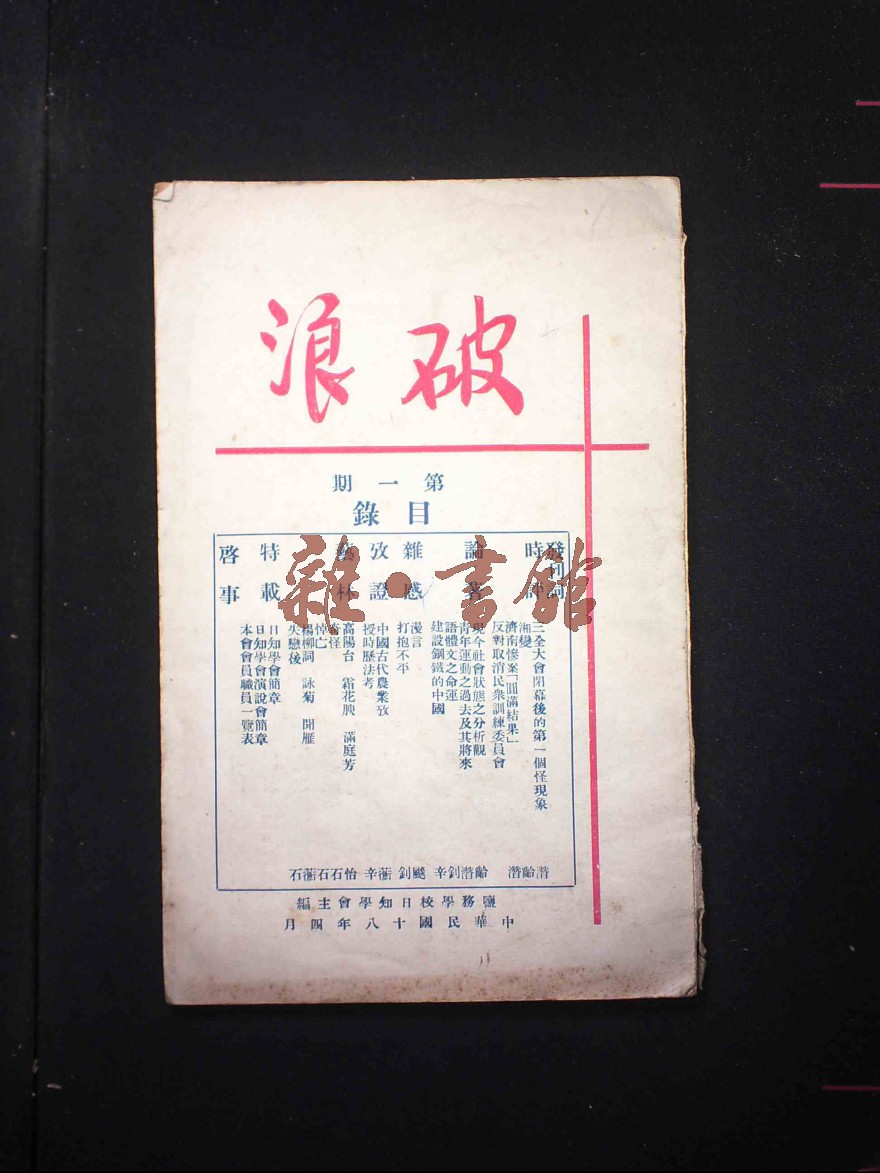 破浪
第一期
目錄
發刊詞
時評
三全大會閉幕後的第一個怪現象
湘變
濟南慘案「圓滿結果」
反對取消民衆訓練委員會
論著
現今社會狀態之分析觀
靑年運動之過去及其將來
語體文之命運
建設鋼鐵的中國
雜感
漫言
打抱不平
攷證
中國古代農業攷
授時歷法考
藝林
高陽台 霜花腴 滿庭芳
怪
悼亡
楊柳詞 詠菊 聞雁
失戀後
特載
日知學會簡章
日知學會演說會簡章
本會會員職員一覽表
啓事
潛
齡
潛
齡
潛
釗
辛
飈
釗
蘅
辛
怡
石
石
蘅
石
鹽務學校日知學會主編
中華民國十八年四月
雜·書館